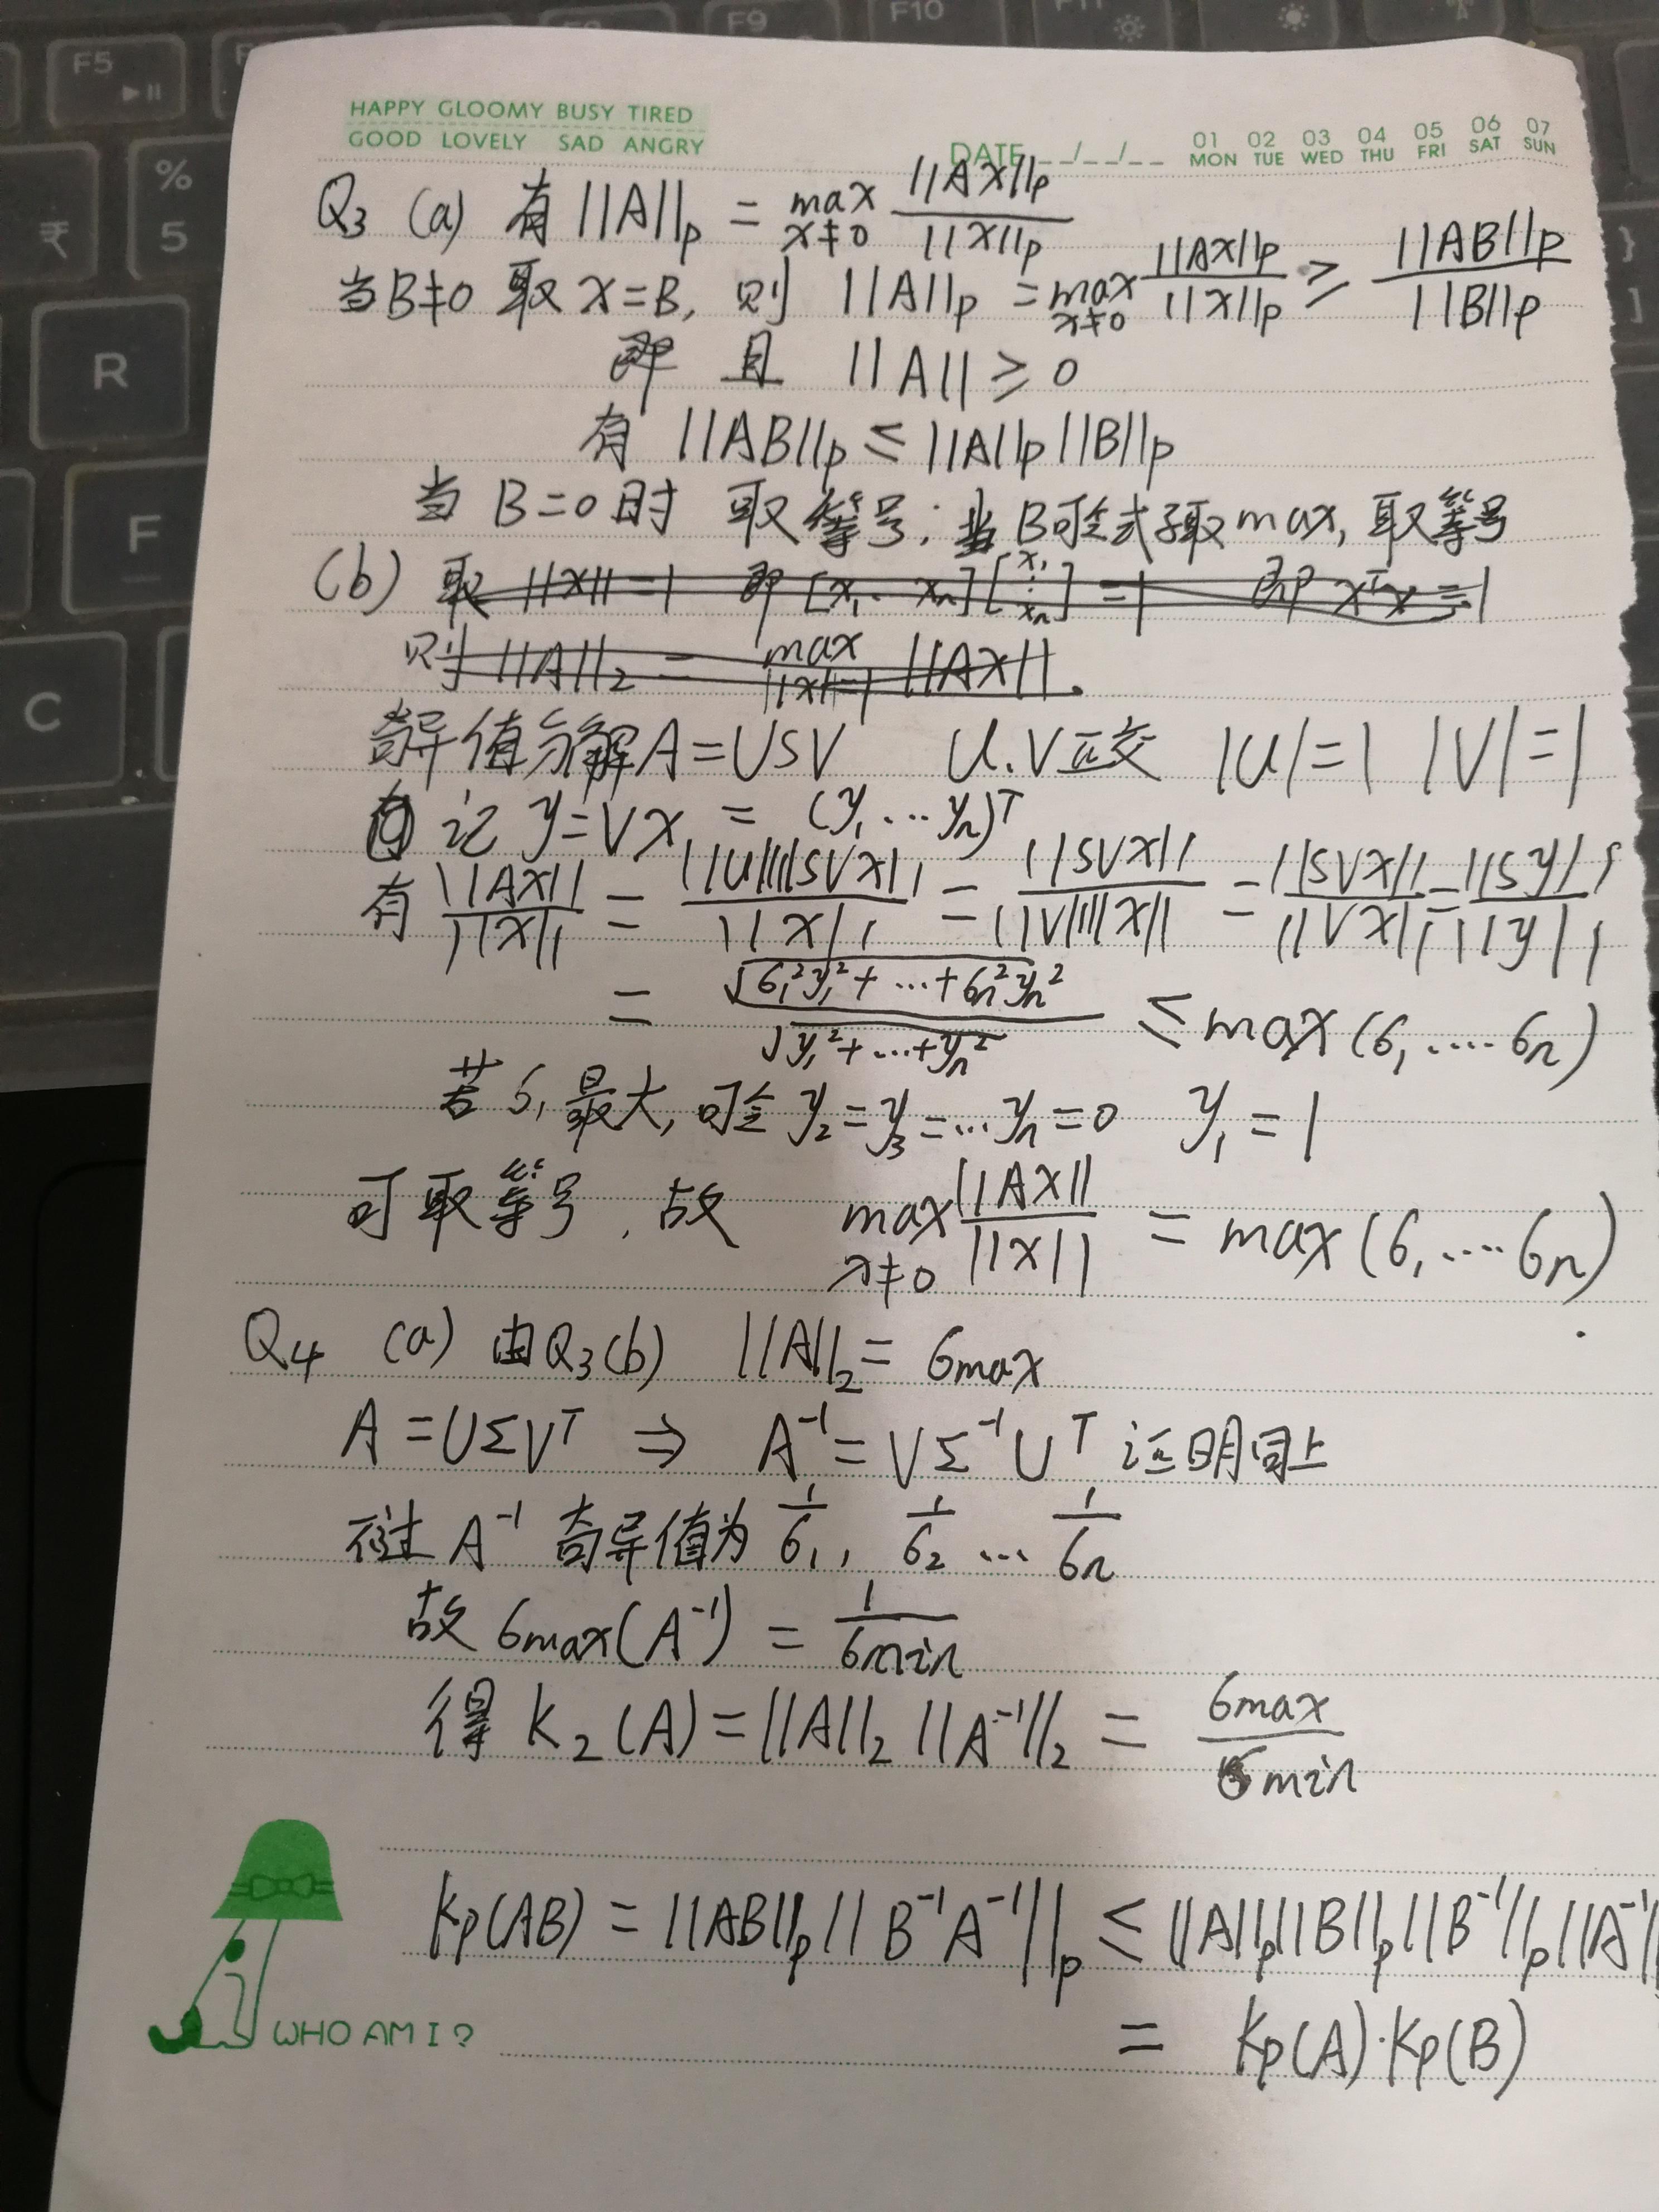 F5
F9
F10
F11
%
5
₹
R
F
C
}
]
HAPPY GLOOMY BUSY TIRED
GOOD LOVELY SAD ANGRY
DATE __/__/__ 01 MON 02 TUE 03 WED 04 THU 05 FRI 06 SAT 07 SUN
Q3 (a) 有 ||A||p = max x≠0 ||AX||p / ||X||p
当B≠0 取 X=B, 则 ||A||p = max x≠0 ||AX||p / ||X||p ≥ ||AB||p / ||B||p
即 且 ||A|| ≥ 0
有 ||AB||p ≤ ||A||p ||B||p
当 B=0时 取等号; 当B可令式子取max, 取等号
(b) 取 ||X||=1 即 [x1 .. xn] [x1 ⋮ xn] = 1 即 xᵀx = 1
则 ||A||2 = max ||x||=1 ||AX||.
奇异值分解A=USV U.V正交 |U|=1 |V|=1
记 y=VX = (y1 ... yn)ᵀ
有 ||AX|| / ||X|| = ||U||||SVX|| / ||X|| = ||SVX|| / ||V||||X|| = ||SVX|| / ||VX|| = ||Sy|| / ||y||
= √(б1²y1² + ... + бn²yn²) / √(y1² + ... + yn²) ≤ max (б1 .... бn)
若б1最大, 可令 y2 = y3 = ... yn = 0 y1 = 1
可取等号, 故 max x≠0 ||AX|| / ||X|| = max (б1 .... бn)
Q4 (a) 由Q3(b) ||A||2 = бmax
A = UΣVᵀ ⇒ A⁻¹ = VΣ⁻¹Uᵀ 证明同上
不过 A⁻¹ 奇异值为 1/б1, 1/б2 ... 1/бn
故 бmax(A⁻¹) = 1/бmin
得 K2(A) = ||A||2 ||A⁻¹||2 = бmax / бmin
Kp(AB) = ||AB||p || B⁻¹A⁻¹||p ≤ ||A||p||B||p||B⁻¹||p||A⁻¹||
= Kp(A)·Kp(B)
WHO AM I?